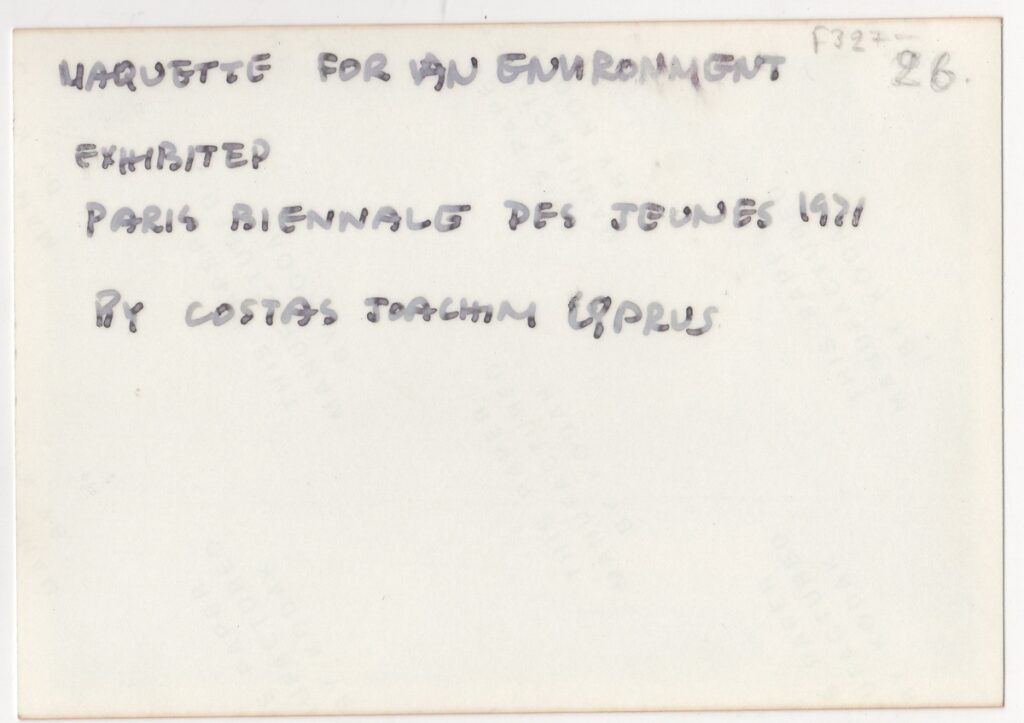 F327-
26.
MAQUETTE FOR AN ENVIRONMENT
EXHIBITED
PARIS BIENNALE DES JEUNES 1971
BY COSTAS JOACHIM CYPRUS